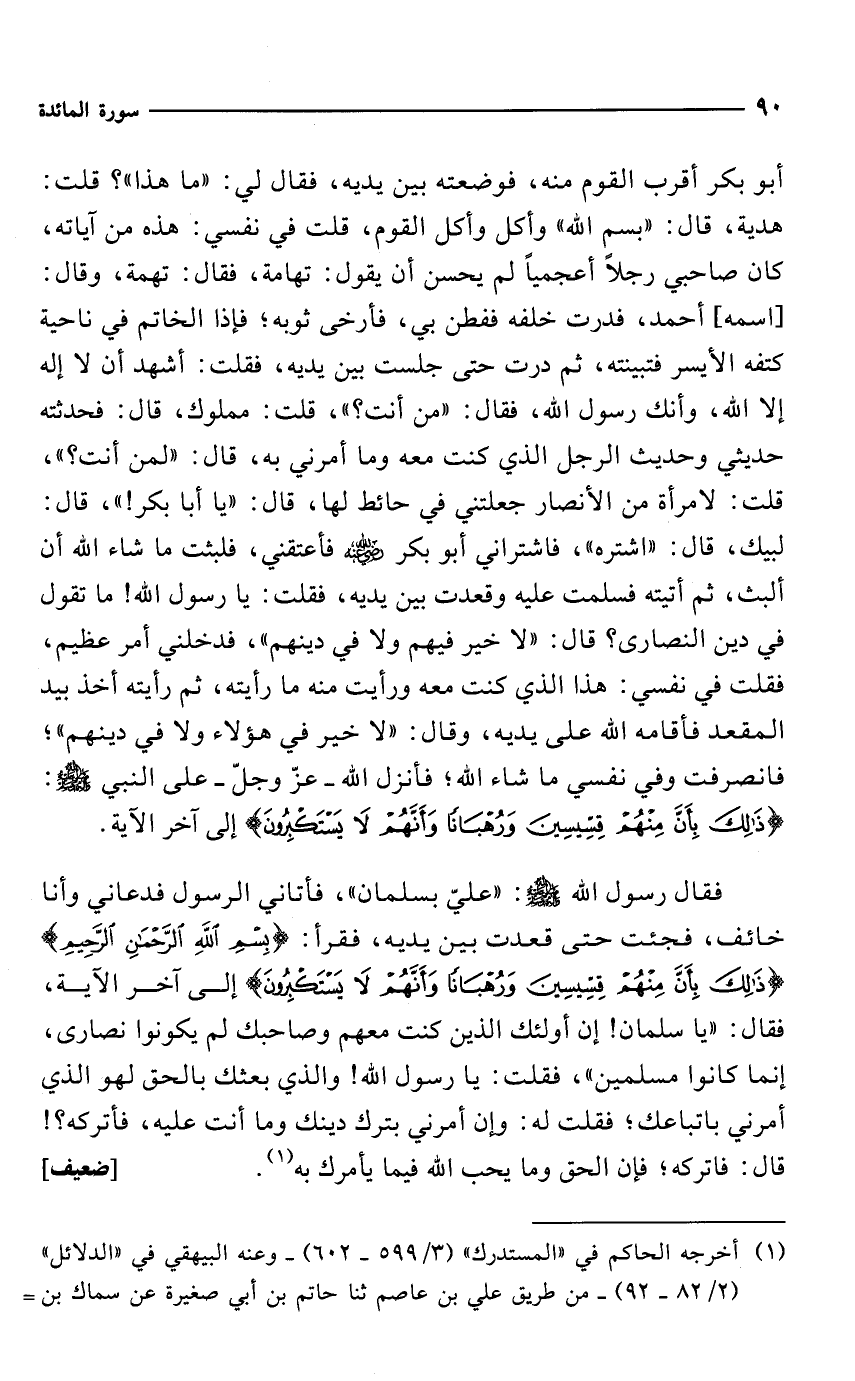 ٩٠ سورة المائدة
أبو بكر أقرب القوم منه، فوضعته بين يديه، فقال لي: «ما هذا»؟ قلت:
هدية، قال: «بسم الله» وأكل وأكل القوم، قلت في نفسي: هذه من آياته،
كان صاحبي رجلاً أعجمياً لم يحسن أن يقول: تهامة، فقال: تهمة، وقال:
[اسمه] أحمد، فدرت خلفه ففطن بي، فأرخى ثوبه؛ فإذا الخاتم في ناحية
كتفه الأيسر فتبينته، ثم درت حتى جلست بين يديه، فقلت: أشهد أن لا إله
إلا الله، وأنك رسول الله، فقال: «من أنت؟»، قلت: مملوك، قال: فحدثته
حديثي وحديث الرجل الذي كنت معه وما أمرني به، قال: «لمن أنت؟»،
قلت: لامرأة من الأنصار جعلتني في حائط لها، قال: «يا أبا بكر!»، قال:
لبيك، قال: «اشتره»، فاشتراني أبو بكر رضي الله عنه فأعتقني، فلبثت ما شاء الله أن
ألبث، ثم أتيته فسلمت عليه وقعدت بين يديه، فقلت: يا رسول الله! ما تقول
في دين النصارى؟ قال: «لا خير فيهم ولا في دينهم»، فدخلني أمر عظيم،
فقلت في نفسي: هذا الذي كنت معه ورأيت منه ما رأيته، ثم رأيته أخذ بيد
المقعد فأقامه الله على يديه، وقال: «لا خير في هؤلاء ولا في دينهم»؛
فانصرفت وفي نفسي ما شاء الله؛ فأنزل الله ـ عزّ وجلّ ـ على النبي ﷺ:
﴿ذَٰلِكَ بِأَنَّ مِنْهُمْ قِسِّيسِينَ وَرُهْبَانًا وَأَنَّهُمْ لَا يَسْتَكْبِرُونَ﴾ إلى آخر الآية.
فقال رسول الله ﷺ: «عليّ بسلمان»، فأتاني الرسول فدعاني وأنا
خائف، فجئت حتى قعدت بين يديه، فقرأ: ﴿بِسْمِ ٱللَّهِ ٱلرَّحْمَٰنِ ٱلرَّحِيمِ﴾
﴿ذَٰلِكَ بِأَنَّ مِنْهُمْ قِسِّيسِينَ وَرُهْبَانًا وَأَنَّهُمْ لَا يَسْتَكْبِرُونَ﴾ إلى آخر الآية،
فقال: «يا سلمان! إن أولئك الذين كنت معهم وصاحبك لم يكونوا نصارى،
إنما كانوا مسلمين»، فقلت: يا رسول الله! والذي بعثك بالحق لهو الذي
أمرني باتباعك؛ فقلت له: وإن أمرني بترك دينك وما أنت عليه، فأتركه؟!
قال: فاتركه؛ فإن الحق وما يحب الله فيما يأمرك به(١). [ضعيف]
(١) أخرجه الحاكم في «المستدرك» (٣/ ٥٩٩ ـ ٦٠٢) ـ وعنه البيهقي في «الدلائل»
(٢/ ٨٢ ـ ٩٢) ـ من طريق علي بن عاصم ثنا حاتم بن أبي صغيرة عن سماك بن =